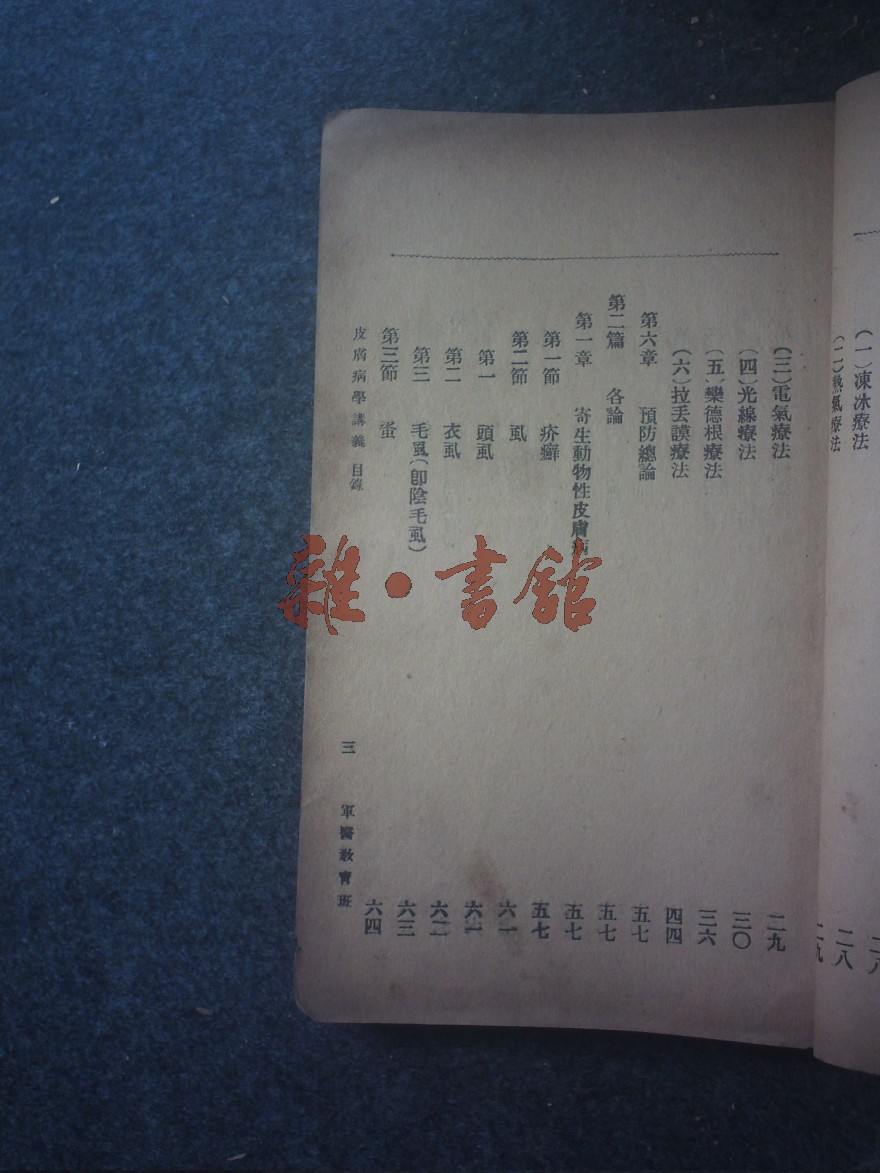 (一)凍冰療法 二八
(二)熱氣療法 二八
二九
(三)電氣療法 二九
(四)光線療法 三〇
(五)欒德根療法 三六
(六)拉丟謨療法 四四
第六章 預防總論 五七
第二篇 各論 五七
第一章 寄生動物性皮膚病 五七
第一節 疥癬 五七
第二節 虱 六一
第一 頭虱 六一
第二 衣虱 六二
第三 毛虱(卽陰毛虱) 六三
第三節 蚤 六四
皮膚病學講義 目錄 三 軍醫敎育班
雜·書館